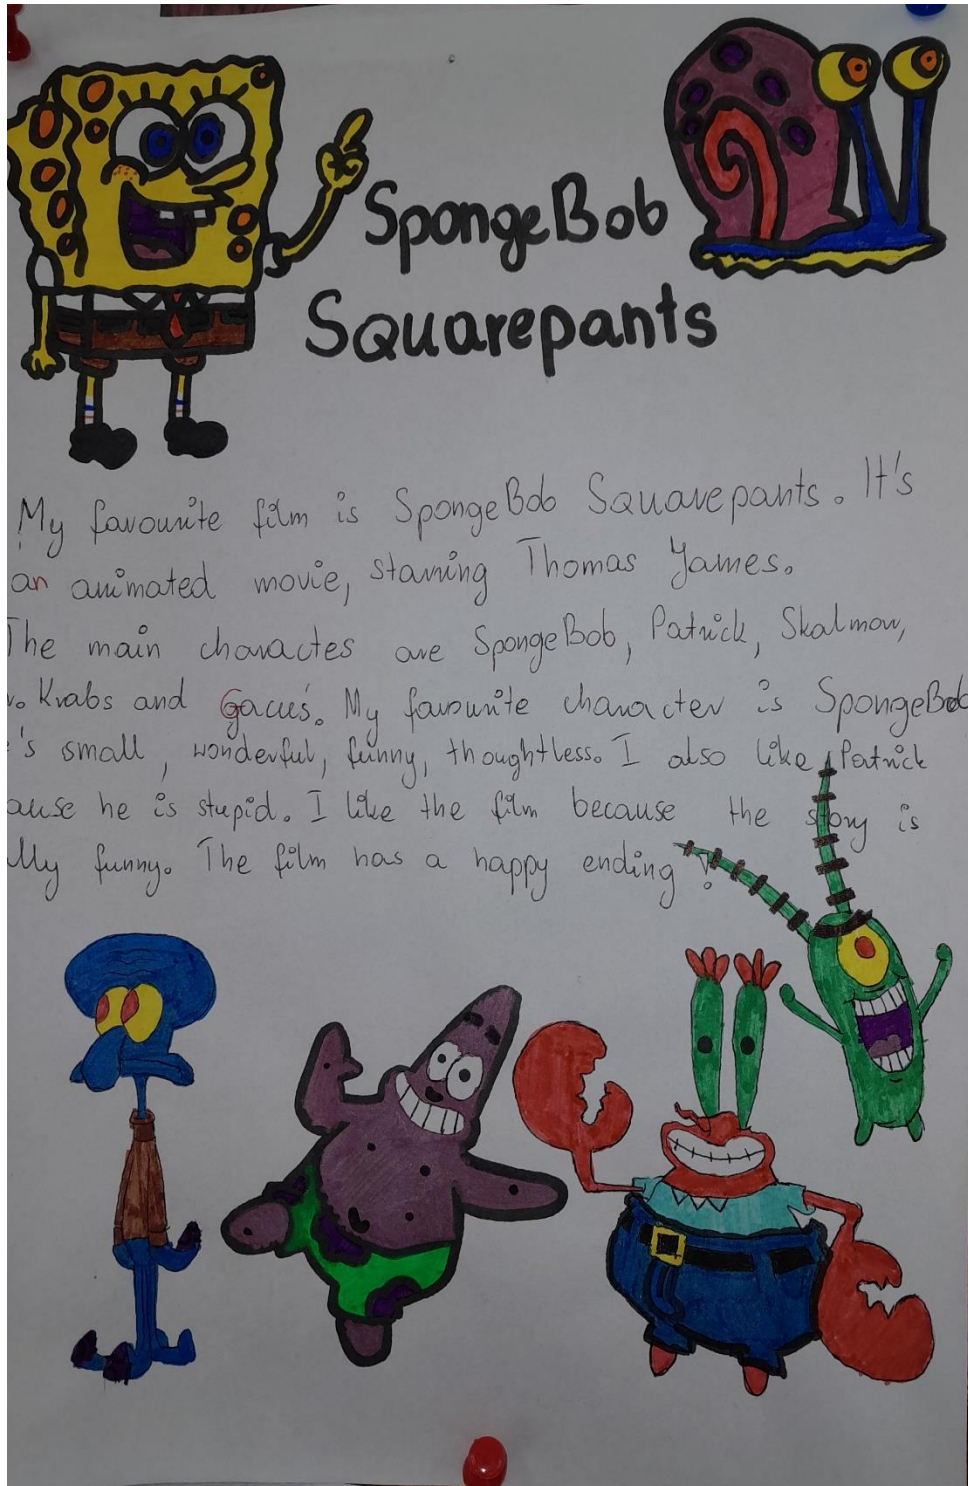 SpongeBob
Squarepants
My favourite film is SpongeBob Squarepants. It's
an animated movie, starring Thomas Yames.
The main charactes are SpongeBob, Patrick, Skalmow,
. Krabs and Gacuś. My favourite character is SpongeBob
's small, wonderful, funny, thoughtless. I also like Patrick
ause he is stupid. I like the film because the story is
lly funny. The film has a happy ending!